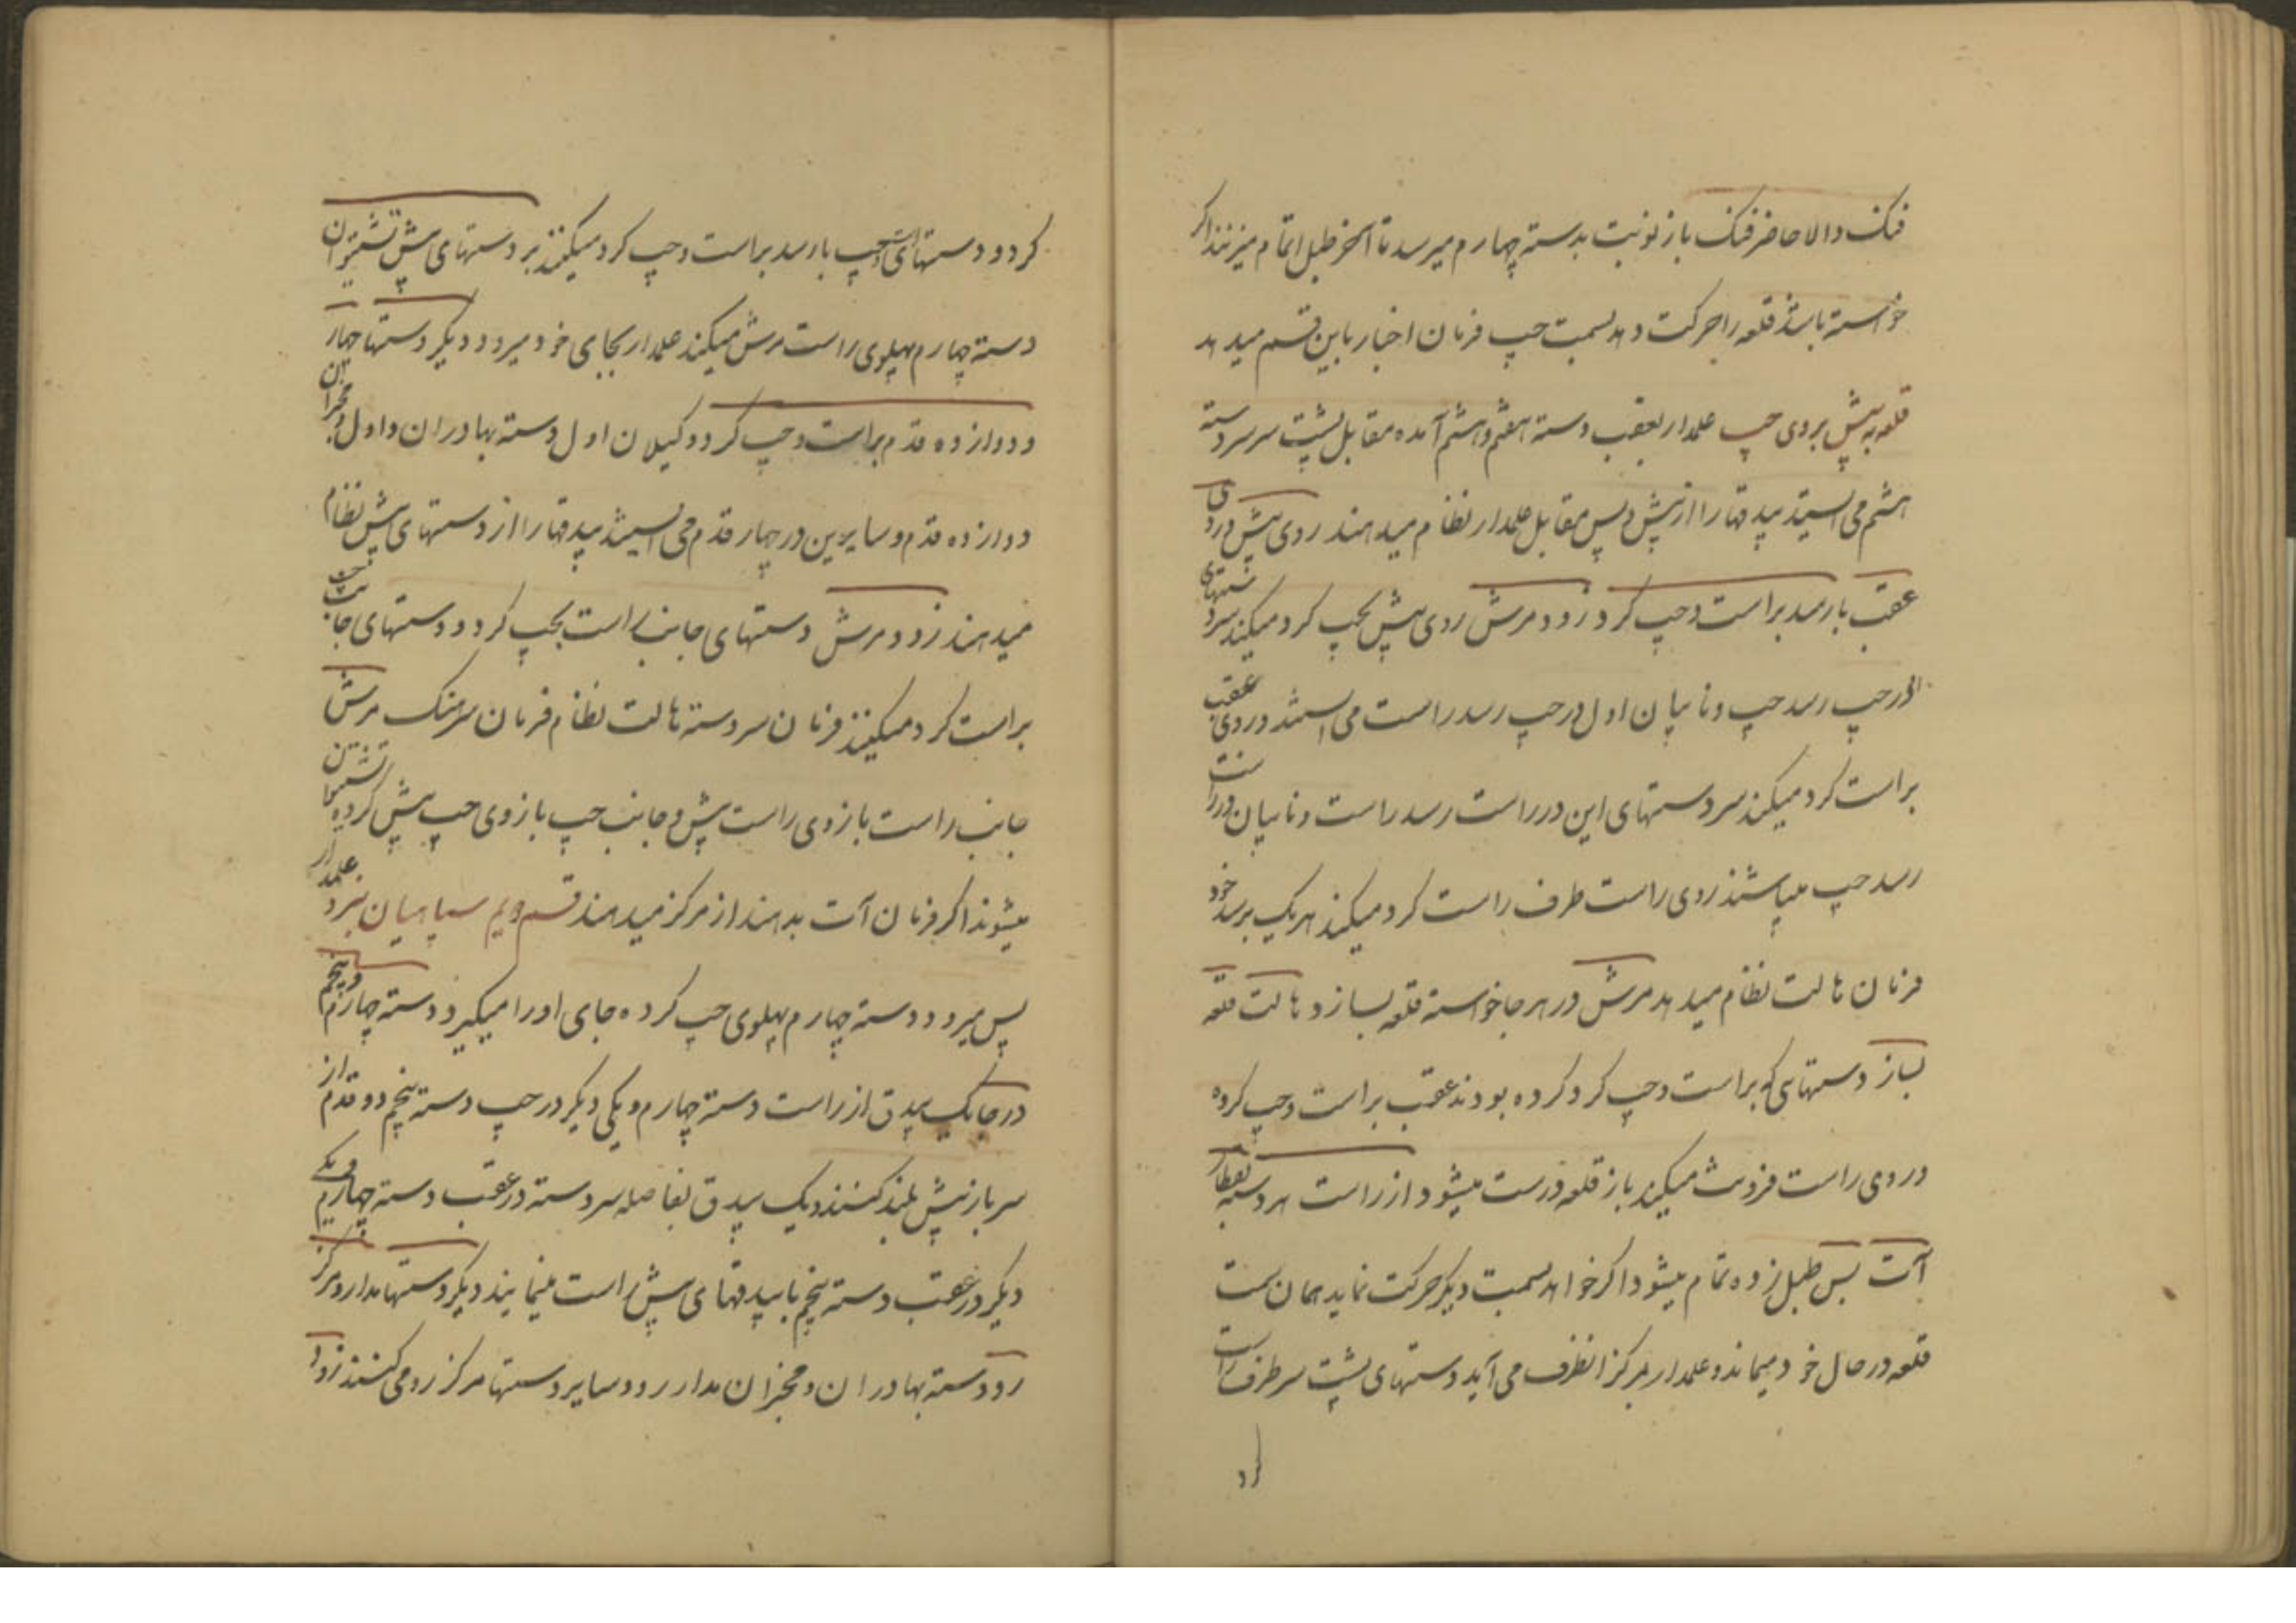 فنک دالا حاضر فنک باز نوبت بدسته چهارم میرسد تا آخر طبل اتمام میزنند اکر
خواسته باشد قلعه را حرکت دهد بسمت چپ فرمان اخبار باین قسم میدهد
قلعه به پیش بروی چپ علمدار بعقب دسته هفتم و هشتم آمده مقابل پشت سر سردسته
هشتم می ایستد بیدقها را از پیش و پس مقابل علمدار نظام میدهند روی پیش و روی
عقب بارسد براست و چپ کرد زود مرش روی پیش بچپ کرد میکند سردستهای
در چپ رسد چپ و نایبان اول در چپ رسد راست می ایستند و روی عقب
براست کرد میکند سردستهای این در راست رسد راست و نایبان در راست
رسد چپ میباشند روی راست طرف راست کرد میکند هر یک برسد خود
فرمان هالت نظام میدهد مرش در هر جا خواسته قلعه بسازد هالت قلعه
بساز دستهای که براست و چپ کرد کرده بودند عقب براست و چپ کرده
و روی راست فرونت میکند باز قلعه درست میشود از راست هر دسته بقطار
آت بس طبل زده تمام میشود اکر خواهد بسمت دیکر حرکت نماید همان سمت
قلعه در حال خود میماند و علمدار بمرکز انطرف می آید دستهای پشت سر طرف راست
کرد و دستهای چپ بارسد براست و چپ کرد میکنند بر دستهای پیش
دسته چهارم پهلوی راست مرش میکند علمدار بجای خود میرود دیکر دستها چهار
و دوازده قدم براست و چپ کرد وکیلان اول دسته بهادران و اول مخبران
دوازده قدم و سایرین در چهار قدم می ایستند بیدقها را از دستهای پیش نظام
میدهند زود مرش دستهای جانب راست بچپ کرد و دستهای جانب چپ
براست کرد میکنند فرمان سردسته هالت نظام فرمان سرهنک مرش
جانب راست بازوی راست پیش و جانب چپ بازوی چپ پیش کرده
میشوند اکر فرمان آت بدهند از مرکز میدهند قسم دویم سپاهیان علمدار
پس میرود دسته چهارم پهلوی چپ کرده جای او را میکیرد دسته چهارم و پنجم
درجا یک بیدق از راست دسته چهارم و یکی دیکر در چپ دسته پنجم دو قدم از
سرباز پیش بلند کنند و یک بیدق بفاصله سردسته در عقب دسته چهارم و یکی
دیکر در عقب دسته پنجم با بیدقهای پیش راست مینمایند دیکر دستها مدار و مرکز
رو دسته بهادران و مخبران مدار رو و سایر دستها مرکز رو می کنند